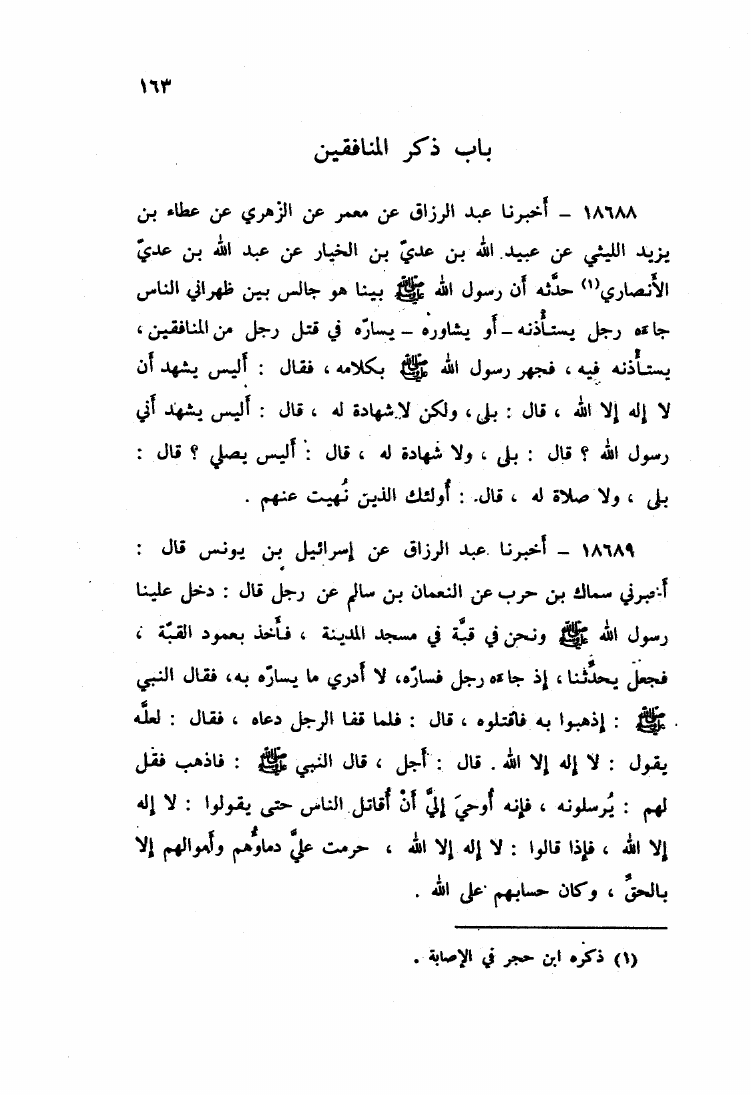 ١٦٣
باب ذكر المنافقين
١٨٦٨٨ – أخبرنا عبد الرزاق عن معمر عن الزهري عن عطاء بن
يزيد الليثي عن عبيد الله بن عديّ بن الخيار عن عبد الله بن عديّ
الأنصاري(١) حدَّثه أن رسول الله ﷺ بينا هو جالس بين ظهراني الناس
جاءه رجل يستأذنه – أو يشاوره – يسارّه في قتل رجل من المنافقين ،
يستأذنه فيه ، فجهر رسول الله ﷺ بكلامه ، فقال : أليس يشهد أن
لا إله إلا الله ، قال : بلى ، ولكن لا شهادة له ، قال : أليس يشهد أني
رسول الله ؟ قال : بلى ، ولا شهادة له ، قال : أليس يصلي ؟ قال :
بلى ، ولا صلاة له ، قال : أولئك الذين نُهيت عنهم .
١٨٦٨٩ – أخبرنا عبد الرزاق عن إسرائيل بن يونس قال :
أخبرني سماك بن حرب عن النعمان بن سالم عن رجل قال : دخل علينا
رسول الله ﷺ ونحن في قبَّة في مسجد المدينة ، فأخذ بعمود القبّة ،
فجعل يحدَّثنا ، إذ جاءه رجل فسارّه، لا أدري ما يسارّه به، فقال النبي
ﷺ : إذهبوا به فاقتلوه ، قال : فلما قفا الرجل دعاه ، فقال : لعلَّه
يقول : لا إله إلا الله . قال : أجل ، قال النبي ﷺ : فاذهب فقل
لهم : يُرسلونه ، فإنه أُوحيَ إليَّ أنْ أُقاتل الناس حتى يقولوا : لا إله
إلا الله ، فإذا قالوا : لا إله إلا الله ، حرمت عليَّ دماؤهم وأموالهم إلا
بالحقِّ ، وكان حسابهم على الله .
(١) ذكره ابن حجر في الإصابة .